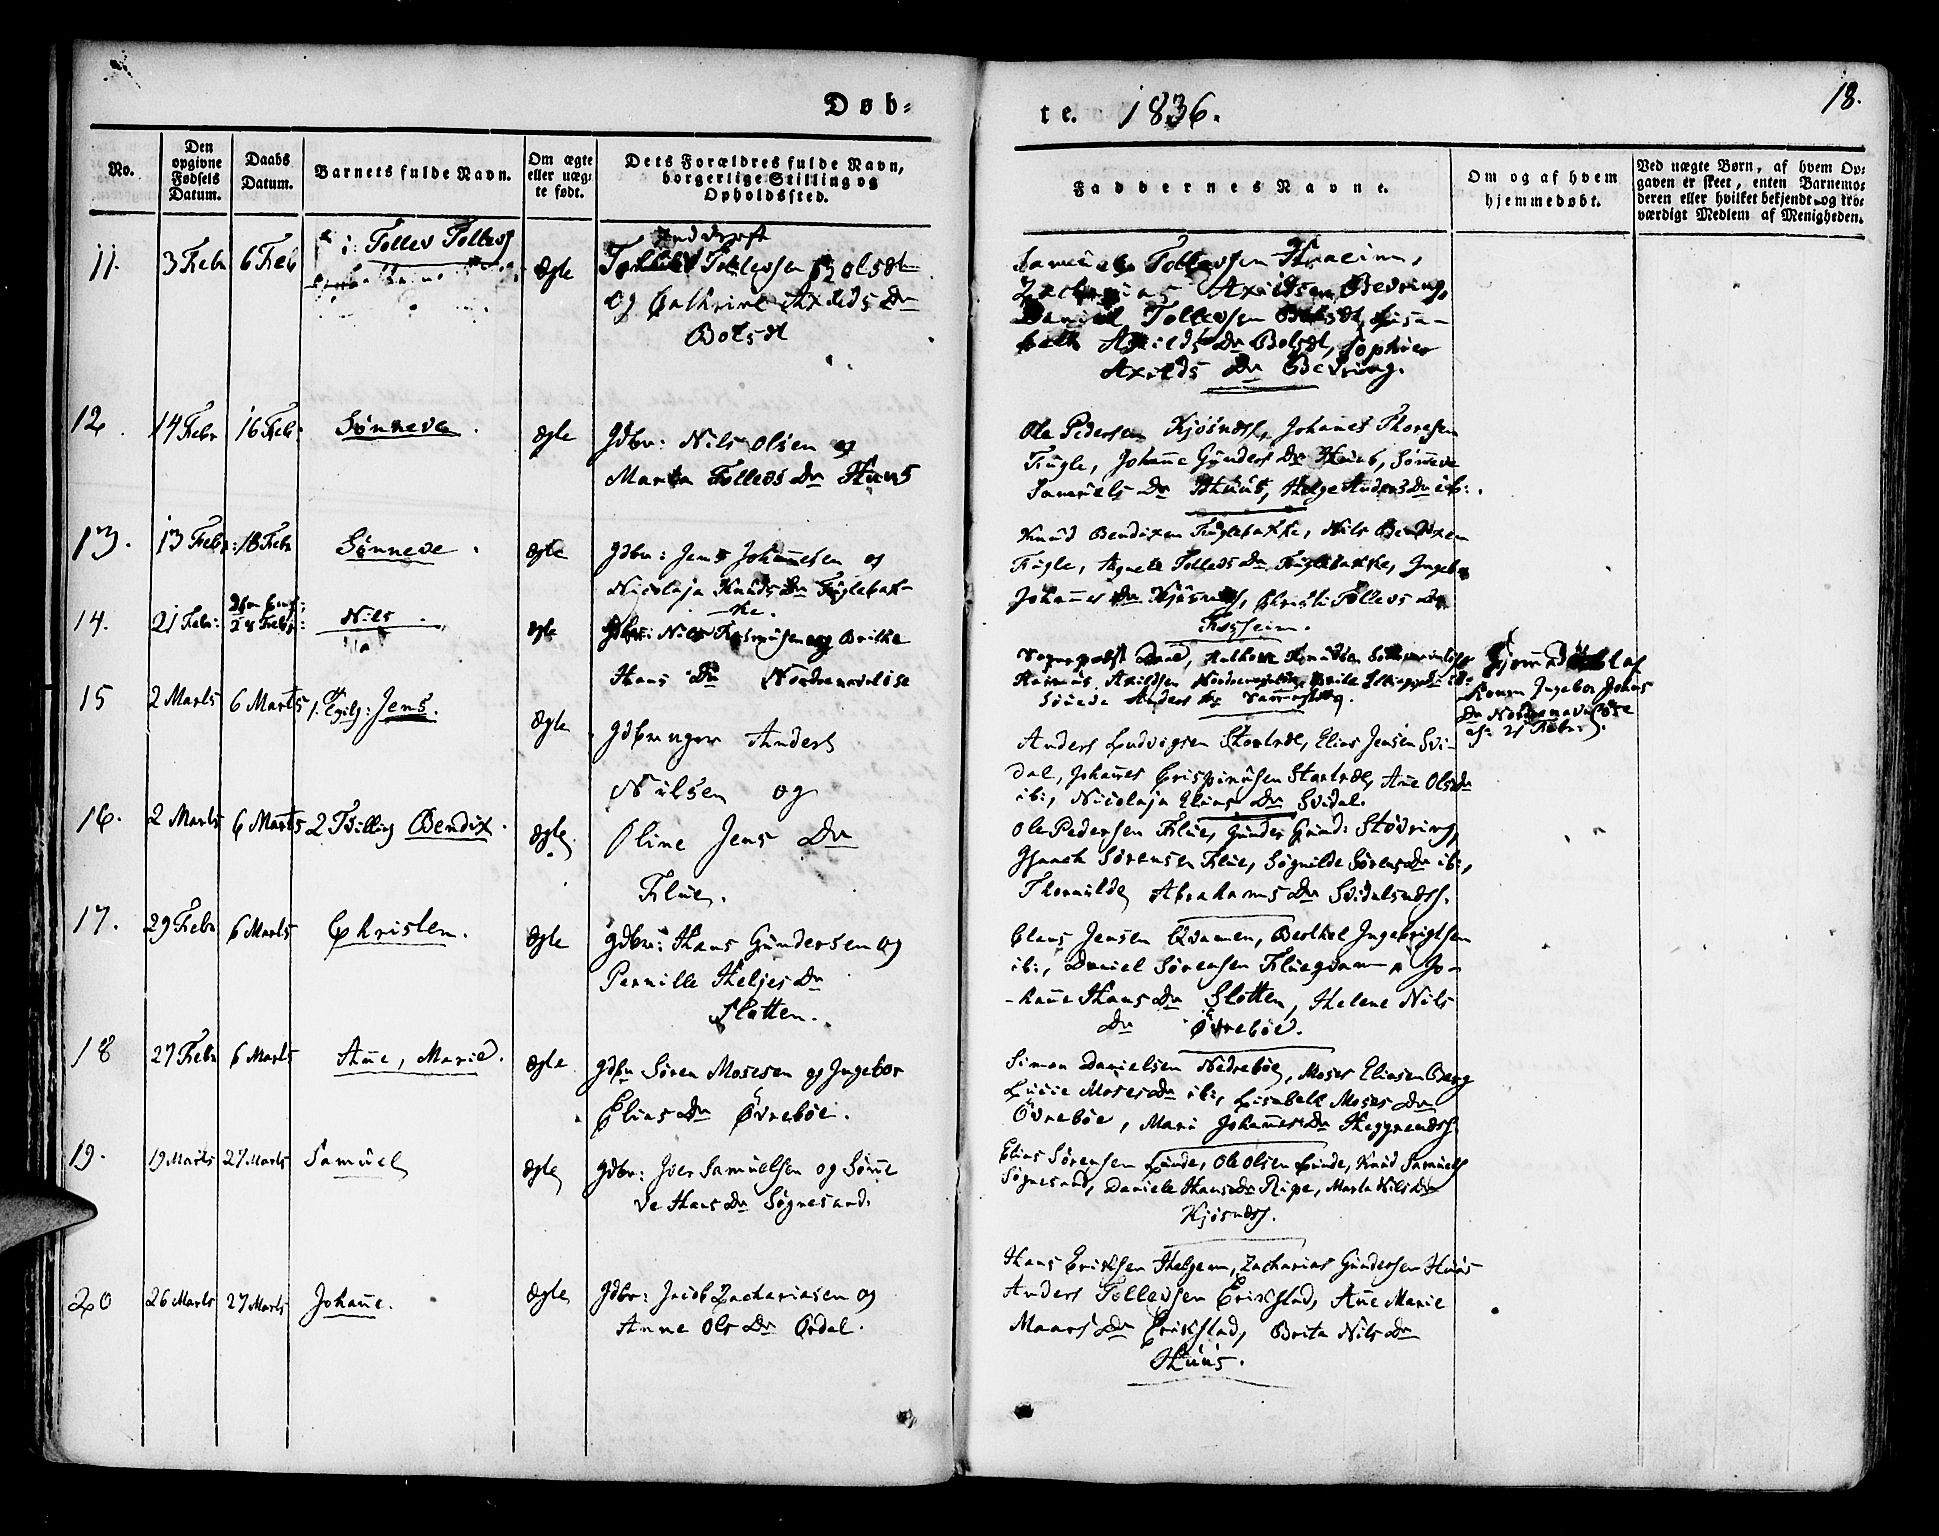 Døb-
te. 1836.
18.
No.
Den opgivne Fødsels Datum.
Daabs Datum.
Barnets fulde Navn.
Om ægte eller uægte født.
Dets Forældres fulde Navn, borgerlige Stilling og Opholdssted.
Faddernes Navne.
Om og af hvem hjemmedøbt.
Ved uægte Børn, af hvem Opgaven er skeet, enten Barnemoderen eller hvilket bekjendt og troværdigt Medlem af Menigheden.
11. 3 Febr 6 Feb Tollev Tollevs Ægte
Tollevsen Bolsdt
og Cathrine Axilds Dr
Bolsdt
Tollevsen
Zacharias Axildsen Bedring,
Daniel Tollevsen Bolsdt, Lisa-
beth Axilds Dr Bolsdt, Sophie
Axilds Dr Bedring.
12. 14 Febr 16 Feb: Sønneve. Ægte
Gdbr: Nils Olsen og
Marta Tolleds Dr Huus
Ole Pedersen Kjösnds, Johanes Thoresen
Fugle, Johanne Gunders Dr Huus, Sønneve
Samuels Dr Huus, Helge Anders Dr ib:.
13. 13 Feb: 18 Febr Sønneve. Ægte
Gdbr: Jens Johannesen og
Nicolaja Knuds Dr Fuglebak-
ke.
Knud Bendixen Fuglebakke, Nils Bendixen
Fugle, Agnete Tolleds Dr Fuglebakke, Ingebor
Johannes Dr Kjösnes, Christi Tollevs Dr
Fosheim.
14. 21 Febr: 28 Feb: Nils. Ægte
Gdbr: Nils Rasmusen og Brithe
Hans Dr Nordrenavløse
Rasmus Axildsen
Sönneve Anders Dr
Hjemmedøbt af
Konen Ingebor Johns
Dr Nordrenavløse
15 2 Marts 6 Marts 1. Tvill: Jens. Ægte
Gdbruger Anders
Nilsen og
Oline Jens Dr
Flue.
Anders Ludvigsen Stortrde, Elias Jensen Svi-
dal, Johannes Crispinusen Stortrde, Anne Ols Dr
ib:, Nicolaja Elias Dr Svidal.
16. 2 Marts 6 Marts 2 Tvilling Bendix. Ægte
Ole Pedersen Flue, Gunder Gund: Stövring,
Isaach Sørensen Flue, Søgnilde Sørens Dr ib:,
Thormilde Abrahams Dr Svidalsnds.
17. 29 Febr 6 Marts Christen. Ægte
Gdbr: Hans Gundersen og
Pernille Heljes Dr
Slotten.
Claus Jensen Qvamen, Berthel Ingebrigtsen
ib:, Daniel Sørensen Fluegdam, Jo-
-hanne Hans Dr Slotten, Helene Nils
Dr Øvrebøe.
18 27 Febr 6 Marts Anne, Marie. Ægte
Gdbr Søren Mosesen og Ingebor
Elias Dr Øvrebøe.
Simon Danielsen Nedrebøe, Moses Eliasen Berg
Lucie Moses Dr ib:, Lisabeth Moses Dr
Øvrebøe, Mari Johannes Dr Heggrends.
19. 19 Marts 27 Marts Samuel Ægte
Gdbr: Iver Samuelsen og Sønne
ve Hans Dr Søgnesand.
Elias Sørensen Lunde, Ole Olsen Lunde, Knud Samuels
Søgnesand, Daniele Hans Dr Ripe, Marta Nils Dr
Kjösnds.
20 26 Marts 27 Marts Johanne. Ægte
Gdbr: Jacob Zachariasen og
Anne Ols Dr Årdal.
Hans Eriksen Helgem, Zacharias Gundersen Huus
Anders Tollevsen Erikstad, Anne Marie
Maars Dr Erikstad, Brita Nils Dr
Huus.